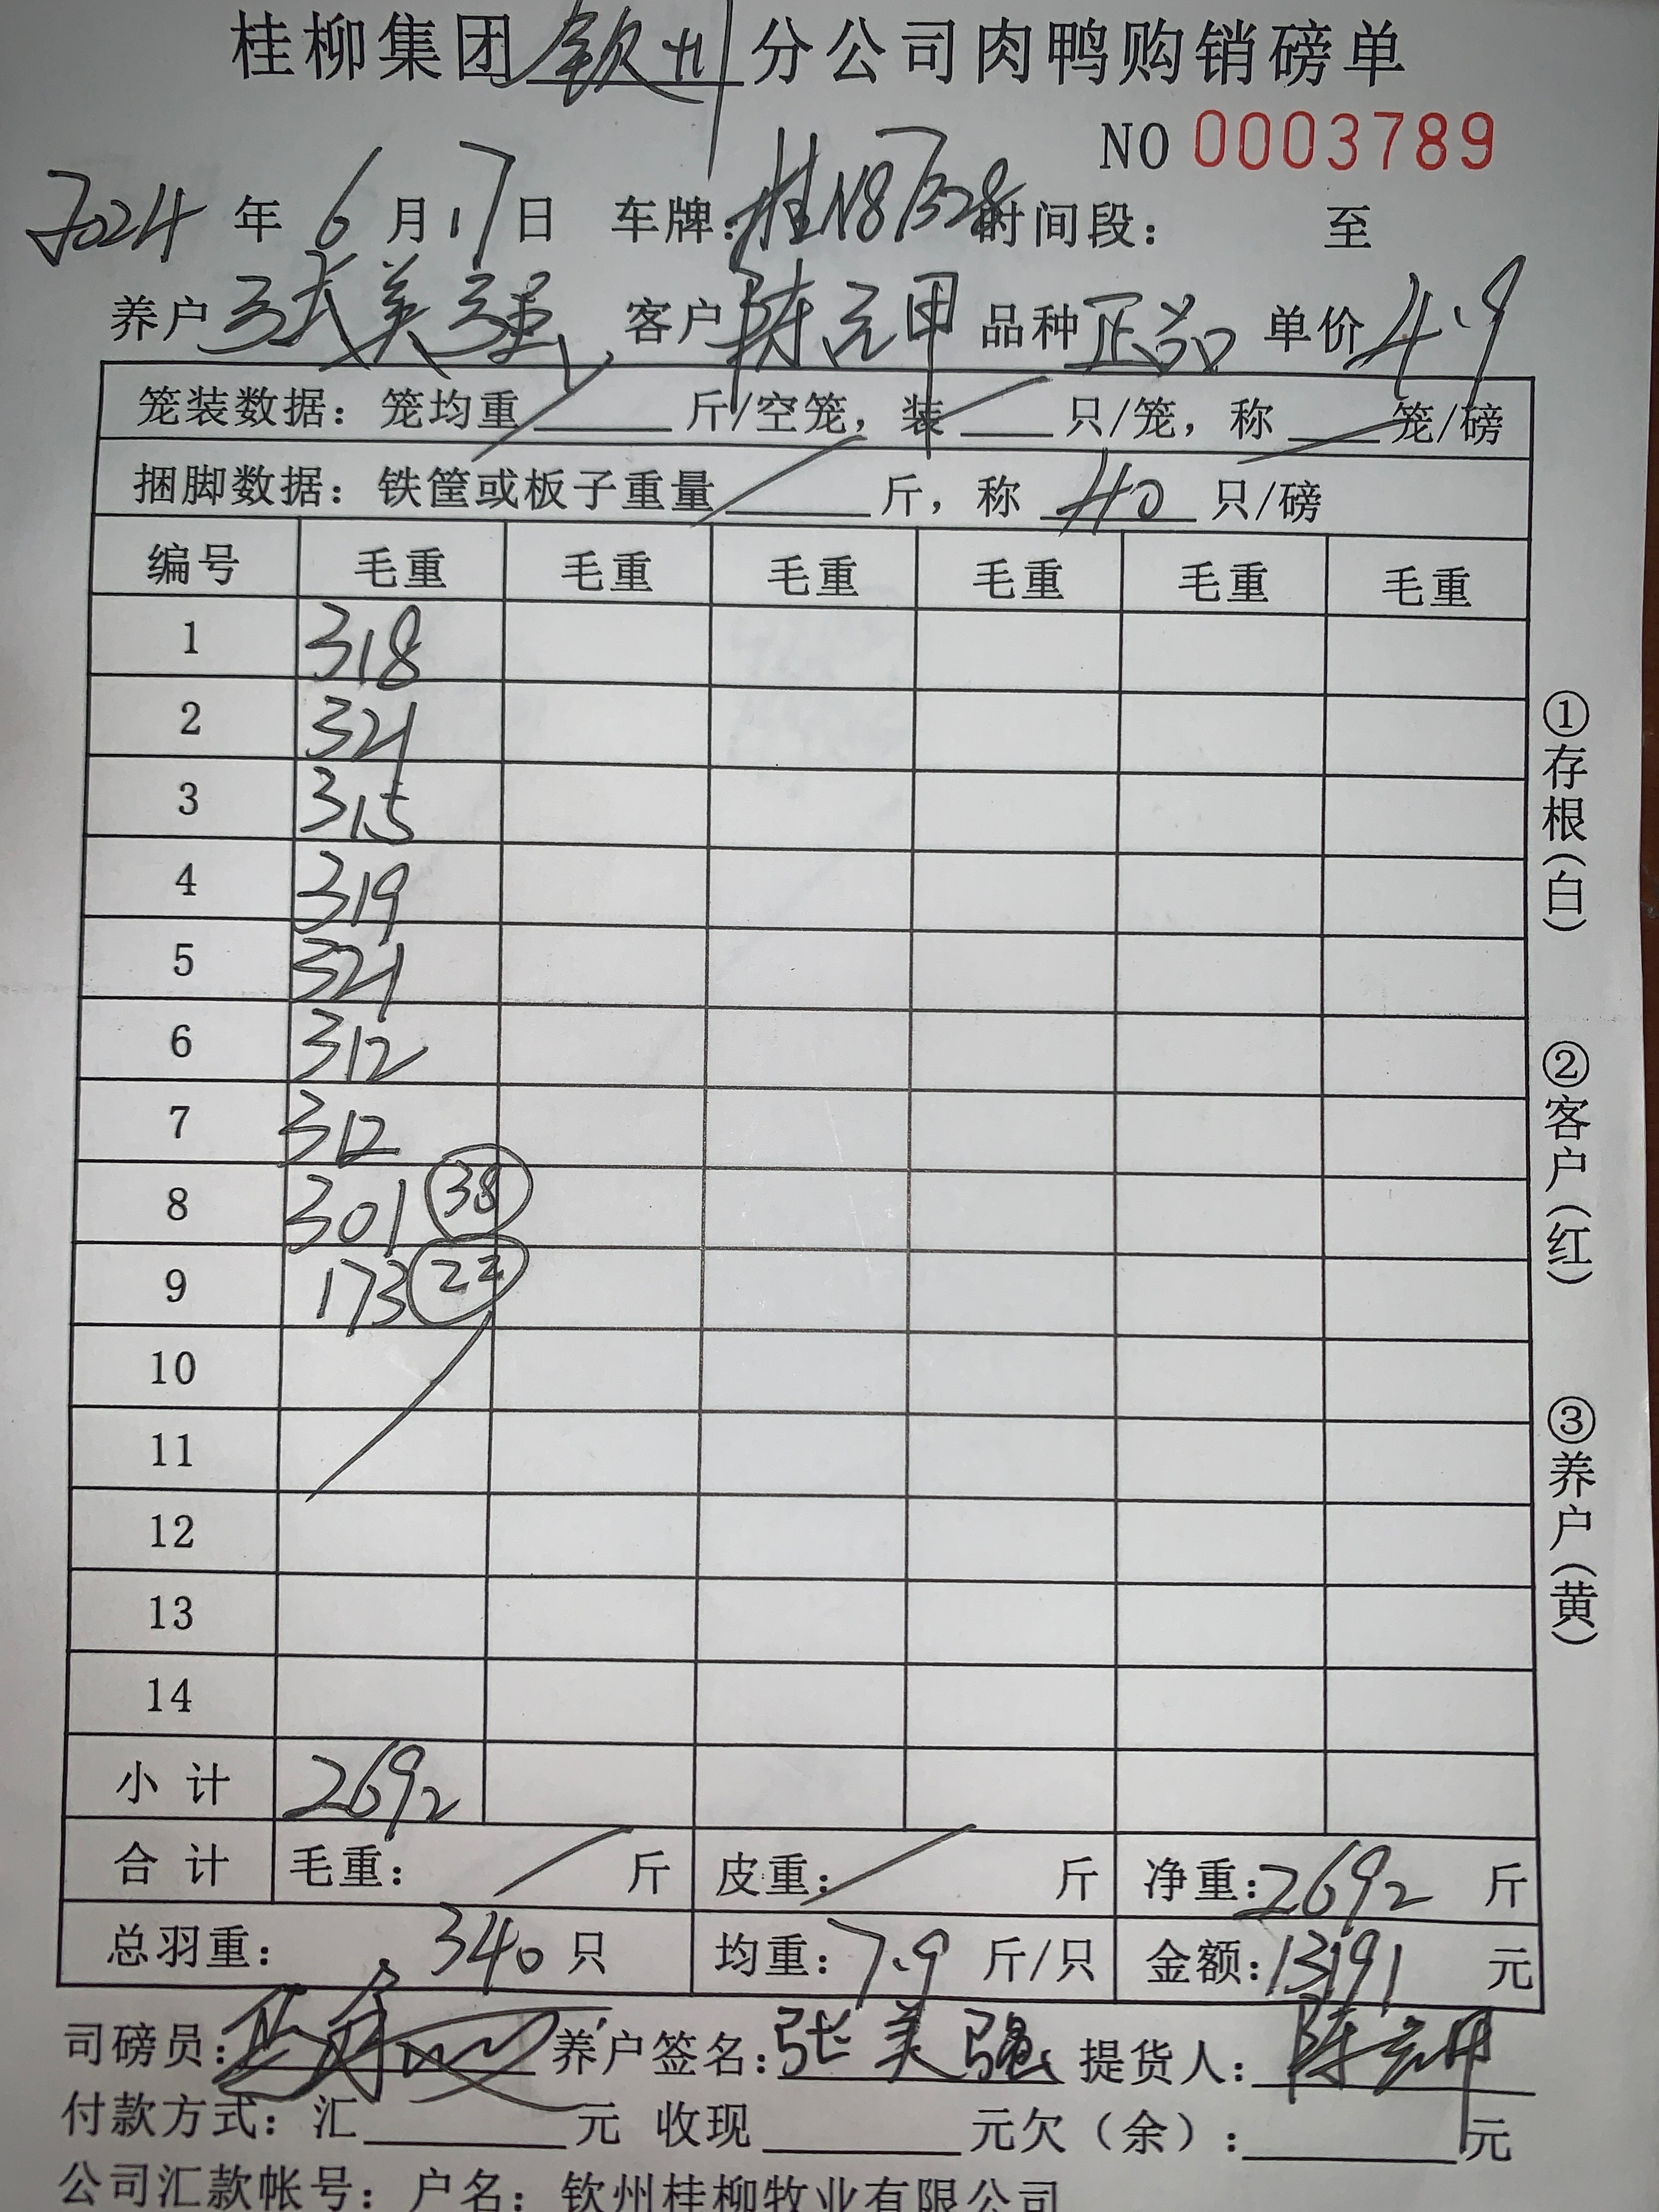 桂柳集团钦州分公司肉鸭购销磅单
NO 0003789
2024 年 6 月 17 日 车牌：桂N8B328 时间段： 至
养户 张美强 客户 陈元甲 品种 正品 单价 4.9
笼装数据：笼均重 斤/空笼，装 只/笼，称 笼/磅
捆脚数据：铁筐或板子重量 斤，称 40 只/磅
编号 毛重 毛重 毛重 毛重 毛重 毛重
1 318
2 321
3 315
4 319
5 321
6 312
7 312
8 301 38
9 173 22
10
11
12
13
14
小计 2692
合计 毛重： 斤 皮重： 斤 净重：2692 斤
总羽重： 340 只 均重：7.9 斤/只 金额：13191 元
司磅员： 养户签名：张美强 提货人：陈元甲
付款方式：汇 元 收现 元欠（余）： 元
公司汇款帐号：户名：钦州桂柳牧业有限公司
①存根（白）
②客户（红）
③养户（黄）